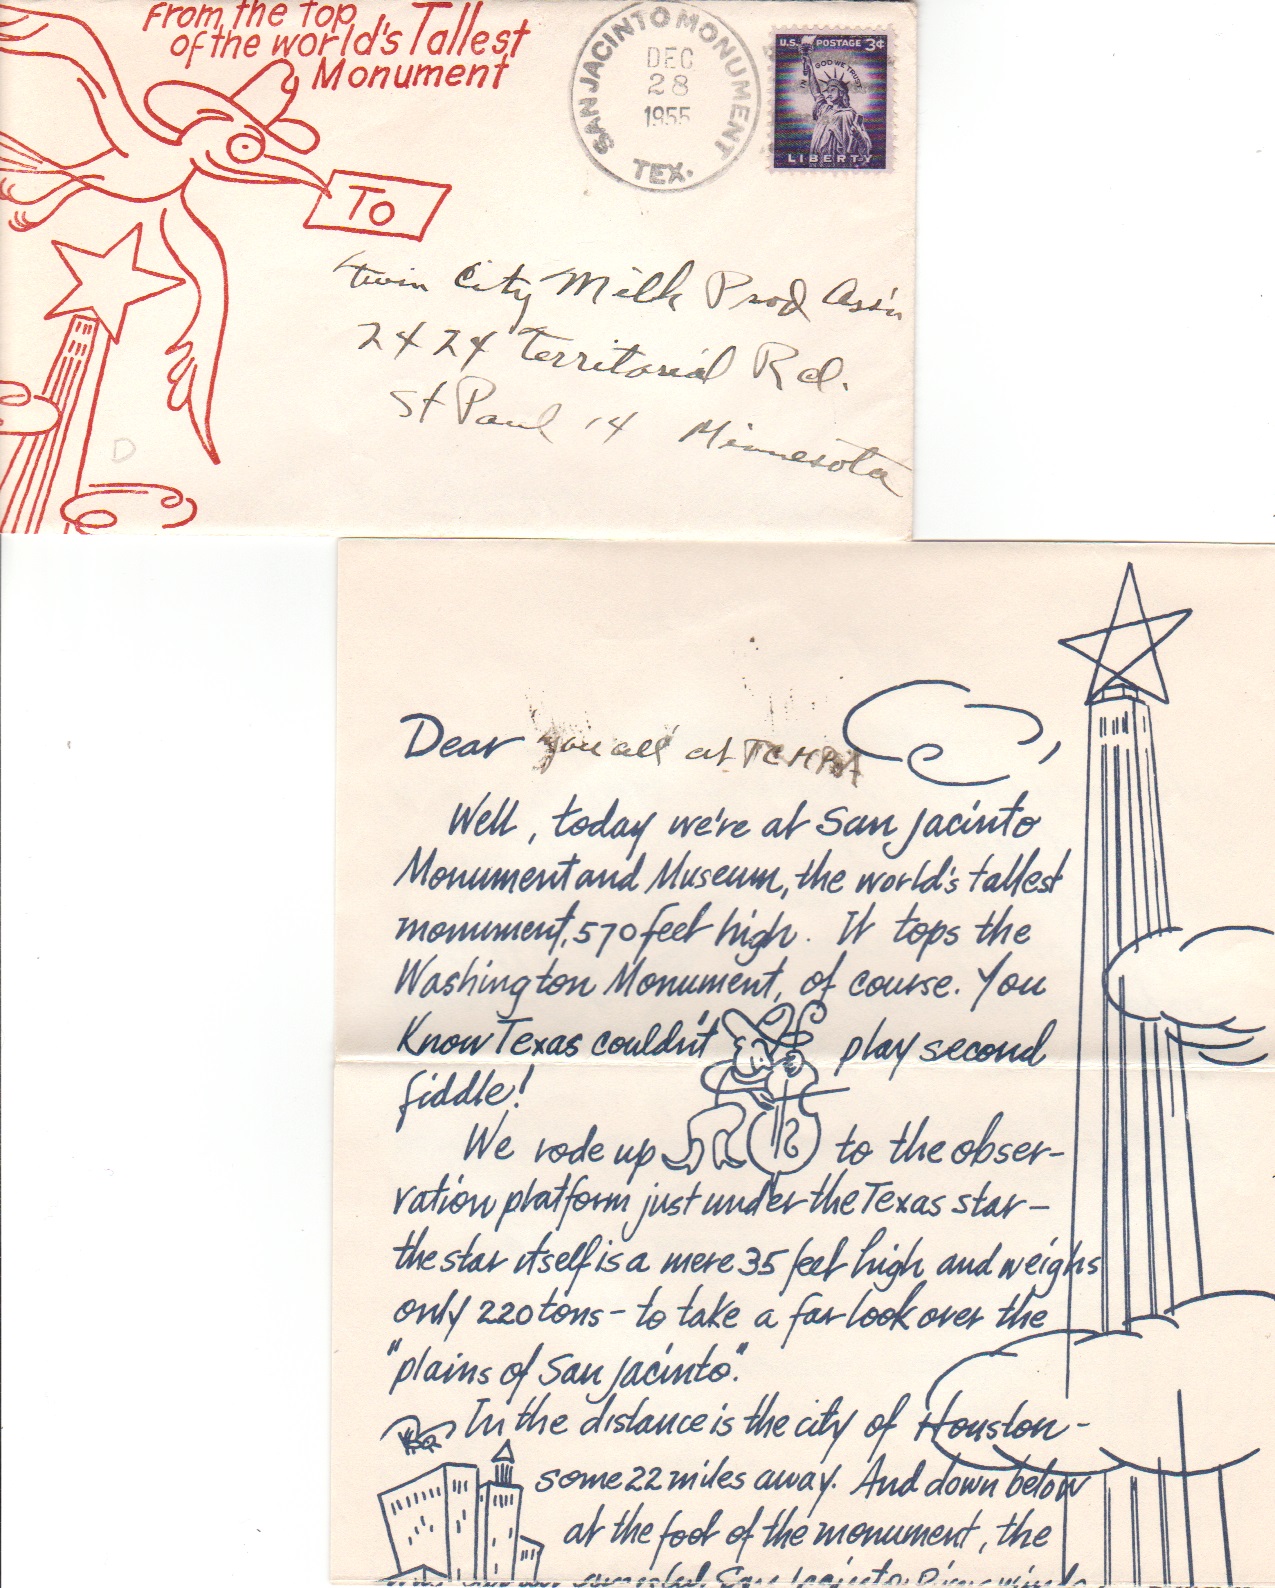 From the top
of the world's Tallest
Monument
SAN JACINTO MONUMENT
DEC
28
1955
TEX.
U.S. POSTAGE 3¢
IN GOD WE TRUST
LIBERTY
To
Twin City Milk Prod Ass'n
2424 Territorial Rd.
St Paul 14 Minnesota
D
Dear you all at TCMPA,
Well, today we're at San Jacinto
Monument and Museum, the world's tallest
monument, 570 feet high. It tops the
Washington Monument, of course. You
Know Texas couldn't play second
fiddle!
We rode up to the obser-
vation platform just under the Texas star -
the star itself is a mere 35 feet high and weighs
only 220 tons - to take a far look over the
"plains of San Jacinto".
In the distance is the city of Houston -
some 22 miles away. And down below
at the foot of the monument, the
San Jacinto River winds